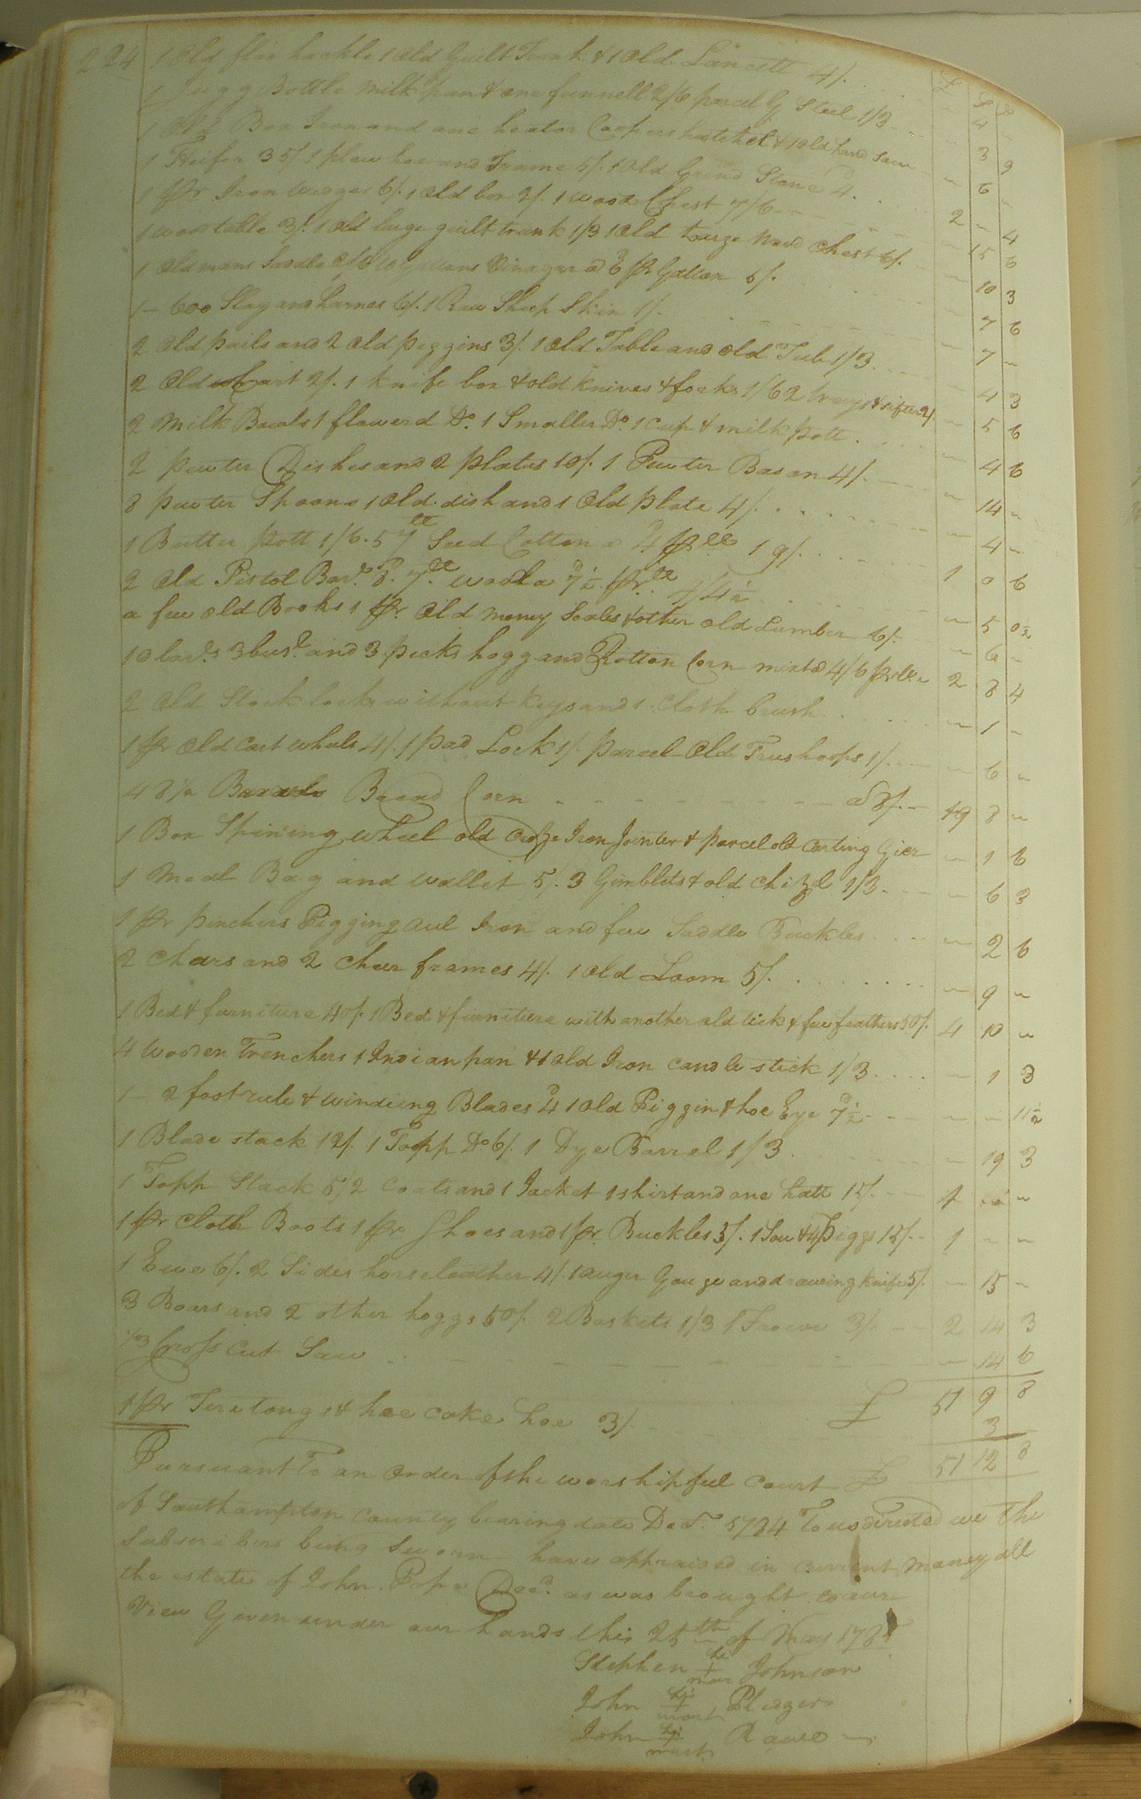 224 1 Old flax hackle 1 Old Guilt Trunk & 1 Old Lancett 4/. £ S D
1 Jugg Bottle milk pan & one funnell 2/6 parcel of Steel 1/3 – 4 –
1 Old Box Iron and one heator Coopers hatchet & 1 old hand saw – 3 9
1 Heifer 35/. 1 plow hoe and Frame 5/. 1 Old Grind Stone 4d – 6 –
1 pr Iron wedges 6/. 1 Old box 2/. 1 wood Chest 7/6 2 – 4
1 wood table 3/. 1 old large guilt trunk 1/3 1 Old large wood Chest 6/. – 15 6
1 Old mans Saddle Gallons Vinager @ 6d pr Gallon 5/. – 10 3
1 – 600 Slay and harnes 6/. 1 Raw Sheep Skin 1/. – 7 6
2 Old pails and 2 old piggins 3/. 1 old Table and old Tub 1/3 – 7 –
2 Old Cart 2/. 1 knife box & old knives & forks 1/6 2 trays & sifter 2/ – 4 3
2 Milk Bowls 1 flowerd Do. 1 Smaller Do. 1 cup & milk pott – 5 6
2 pewter Dishes and 2 plates 10/. 1 Pewter Bason 4/. – 4 6
8 pewter Spoons 1 Old dish and 1 Old plate 4/. – 14 –
1 Butter pott 1/6. 57 lb Seed Cotton @ 4d pr lb 19/. – 4 –
2 Old Pistol Bars. 8d. 7 lb wool @ 7½d pr. lb 4/4½ 1 0 6
a few old Books 1 pr. Old money Scales & other old Lumber 6/. – 5 0½
10 bars. 3 bus. and 3 pecks hogg and Rotton Corn mixt @ 4/6 pr – 6 –
2 Old Stock locks without keys and 1 Cloth brush 2 8 4
1 pr Old Cart wheels 4/. 1 pad Lock 1/. parcel Old Trus hoops 1/. – 1 –
48½ Barrels Bread Corn @ 8/. – 6 –
1 Box Spining wheel old Croze Iron Jointer & parcel old Carting Gier 19 8 –
1 Meal Bag and wallet 5/. 3 Gimblets & old Chizel 1/3 – 1 6
1 pr pinchers Pegging aul Iron and few Saddle Buckles – 6 3
2 Chears and 2 Chear frames 4/. 1 Old Loom 5/. – 2 6
– 9 –
1 Bed & furniture 40/. 1 Bed & furniture with another old tick & few feathers 50/. 4 10 –
4 Wooden Trenchers 1 Indian pan & 1 Old Iron Candle stick 1/3 – 1 3
1 – 2 foot rule & winding Blades 4d 1 old Piggin & hoe Eye 7½d – – 11½
1 Blade stack 12/. 1 Topp Do 6/. 1 Dye Barrel 1/3 – 19 3
1 Topp Stack 5/. 2 Coats and 1 Jacket 1 shirt and one hatt 15/. 1 – –
1 pr Cloth Boots 1 pr Shoes and 1 pr. Buckles 5/. 1 Sow & 4 Pigs 15/. 1 – –
1 Ewe 6/. 2 Sides horse leather 4/. 1 auger Gouge and drawing knife 5/. – 15 –
3 Boars and 2 other hoggs 50/. 2 Baskets 1/3 1 Frowe 3/. 2 14 3
1/3 Cross Cut Saw – 14 6
£ 51 9 8
1 pr Fire tongs & hoe cake hoe 3/. 3
£ 51 12 8
Pursuant To an Order of the worshipful Court
of Southampton County bearing date Decr. 1784 To us directed we the
Subscribers being Sworn have appraised in Current money all
the estate of John Pope Decd. as was brought to our
View Given under our hands this 25th of May 1785
Stephen his + mark Johnson
John his + mark
John his + mark